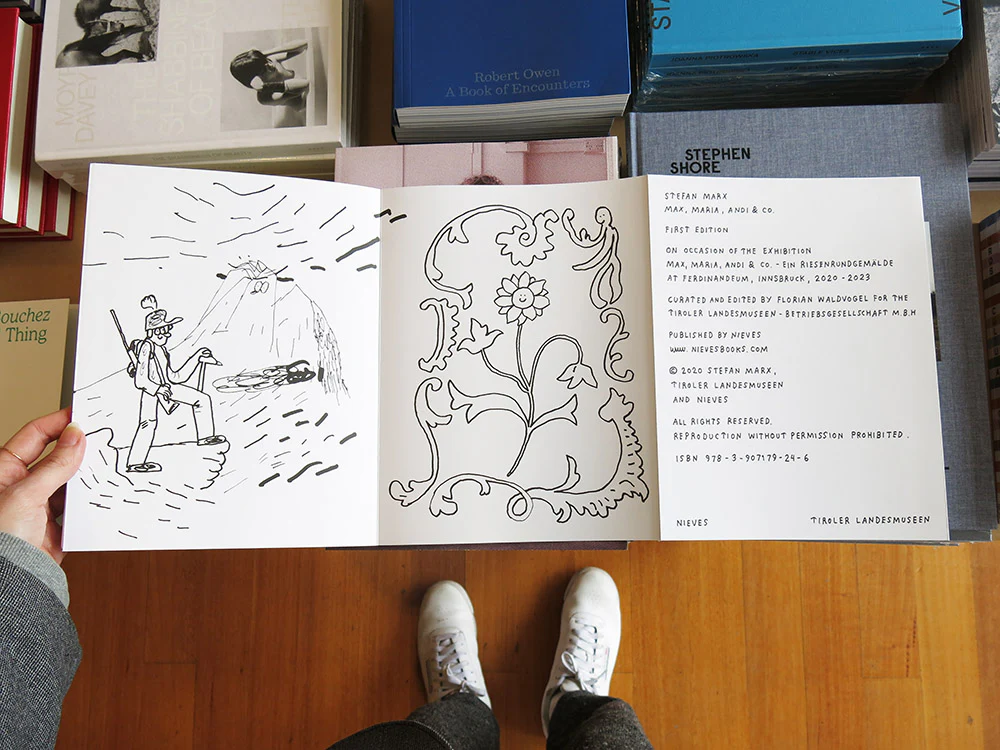 MOYRA DAVEY
Robert Owen
A Book of Encounters
STEPHEN
SHORE
ouchez
Thing
STEFAN MARX
MAX, MARIA, ANDI & CO.
FIRST EDITION
ON OCCASION OF THE EXHIBITION
MAX, MARIA, ANDI & CO. - EIN RIESENRUNDGEMÄLDE
AT FERDINANDEUM, INNSBRUCK, 2020 - 2023
CURATED AND EDITED BY FLORIAN WALDVOGEL FOR THE
TIROLER LANDESMUSEEN - BETRIEBSGESELLSCHAFT M.B.H
PUBLISHED BY NIEVES
www. NIEVESBOOKS.COM
© 2020 STEFAN MARX,
TIROLER LANDESMUSEEN
AND NIEVES
ALL RIGHTS RESERVED.
REPRODUCTION WITHOUT PERMISSION PROHIBITED.
ISBN 978-3-907179-24-6
NIEVES
TIROLER LANDESMUSEEN